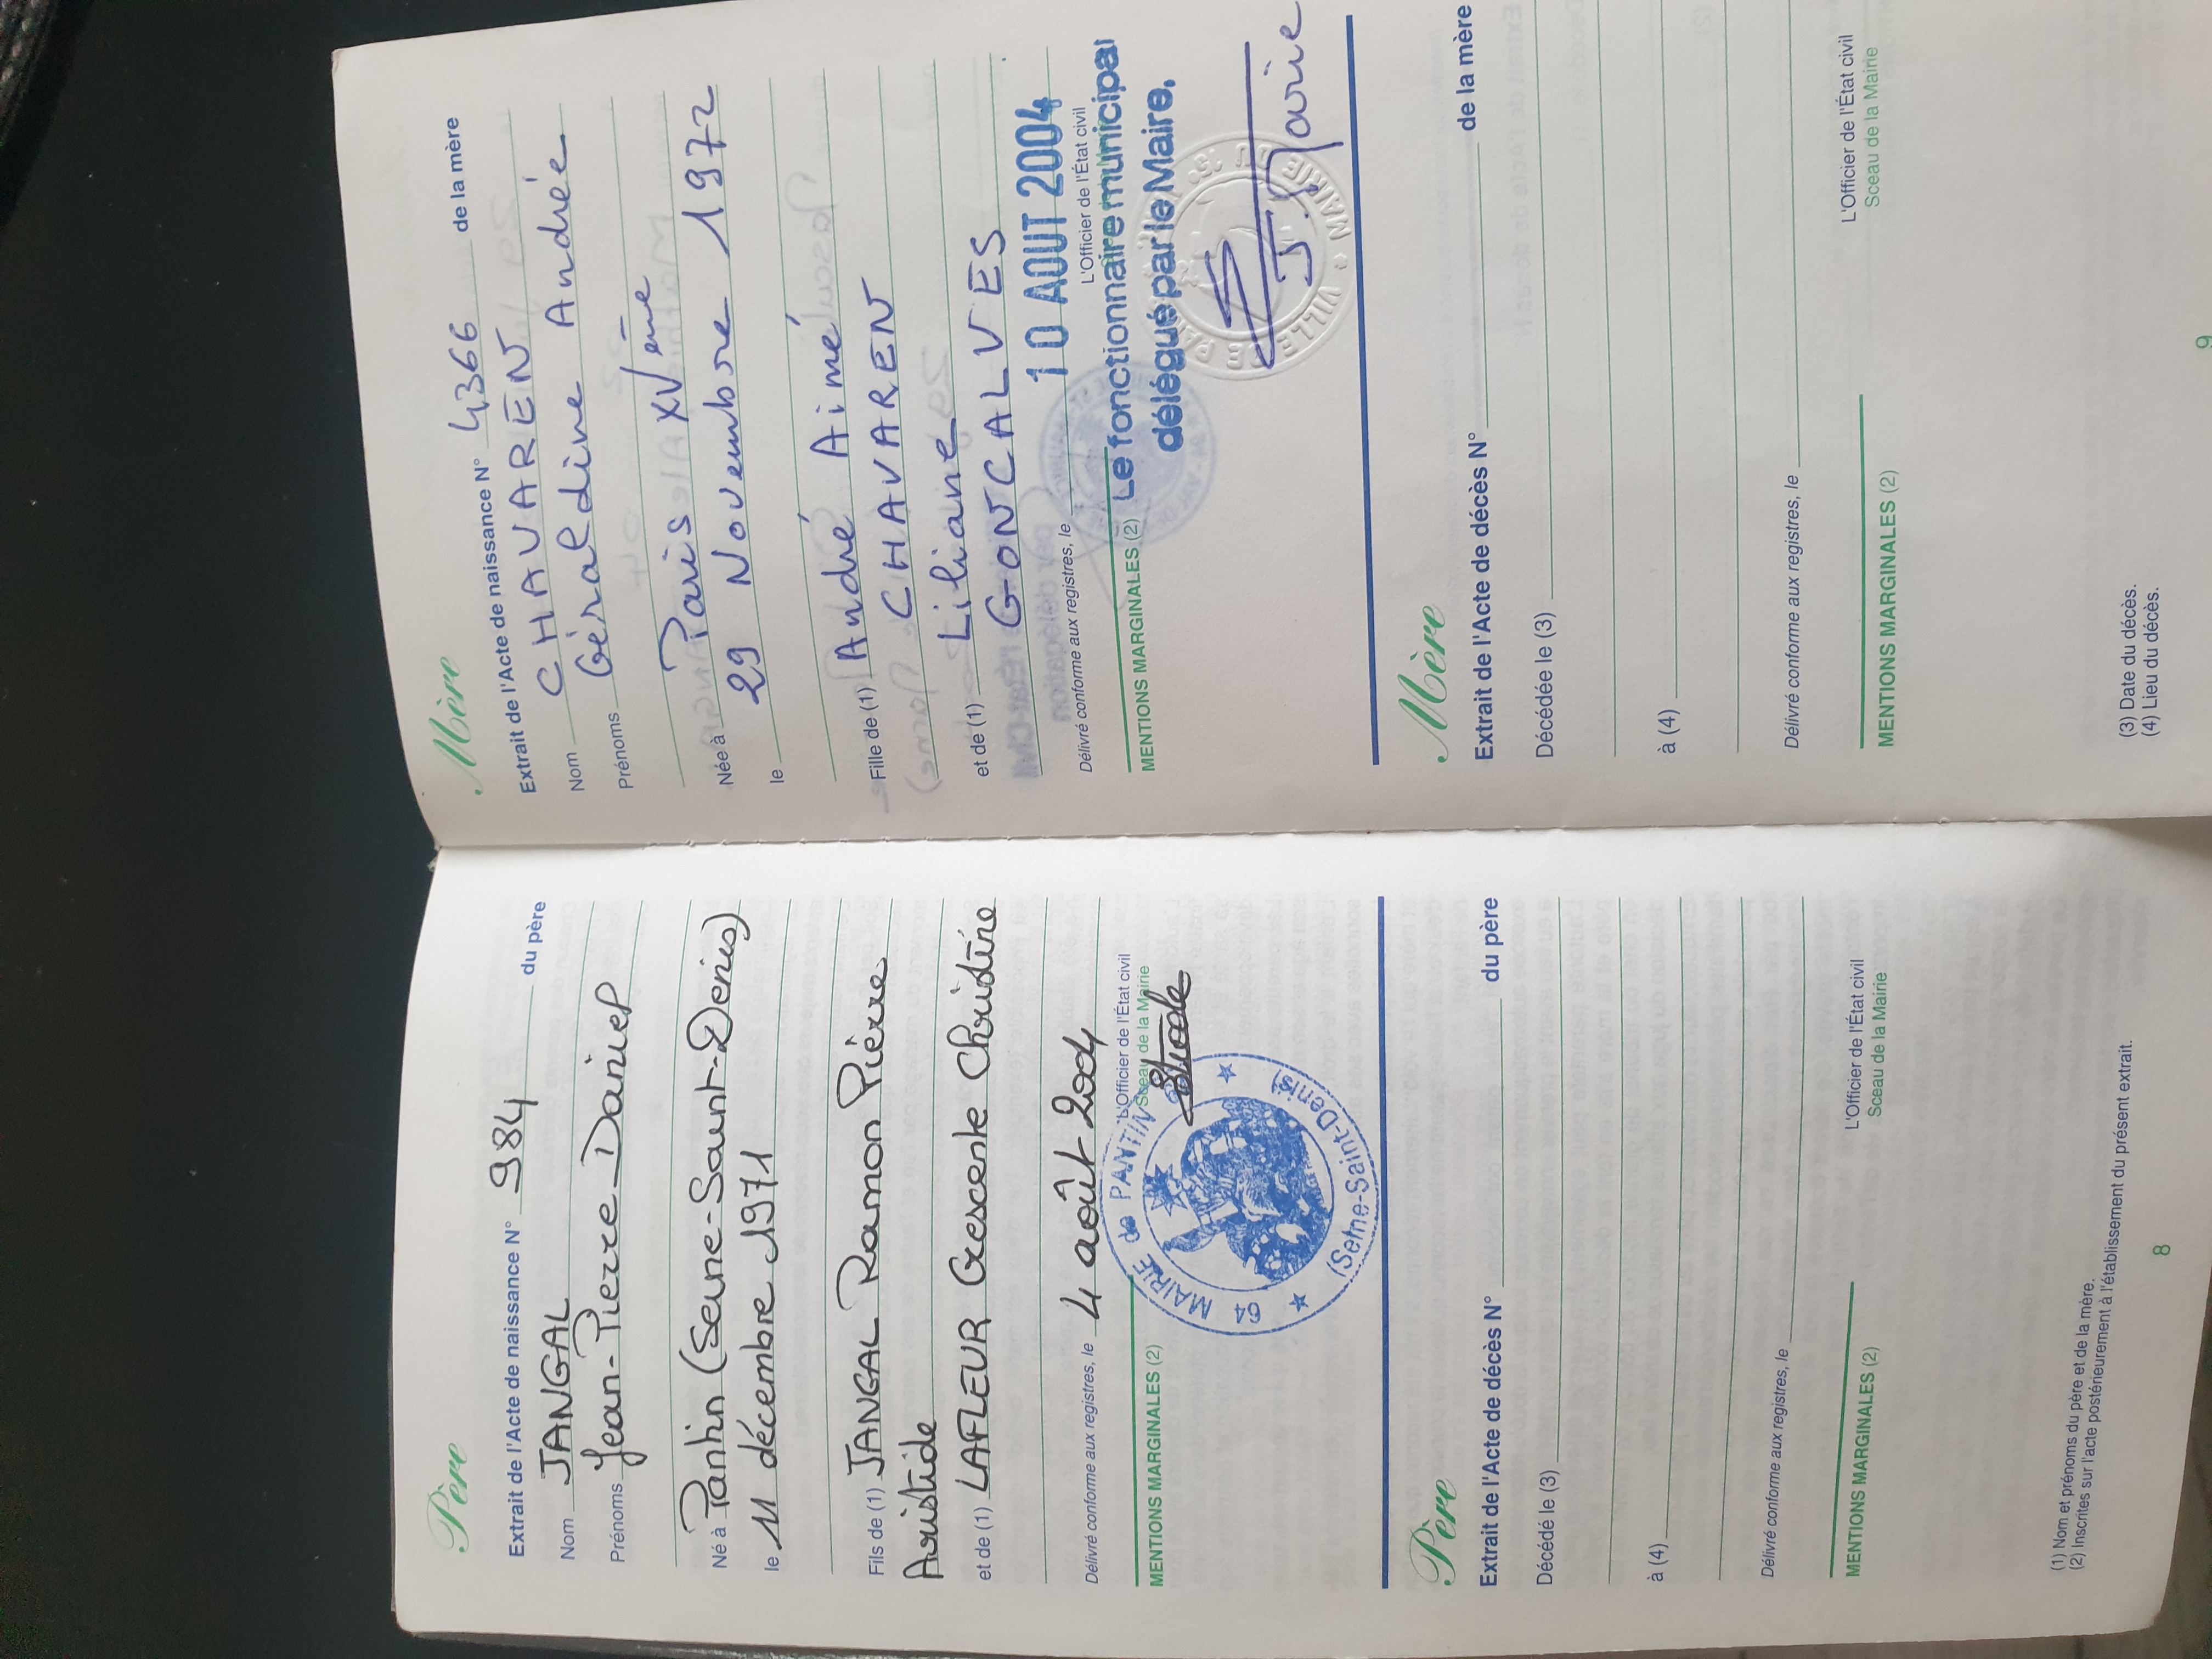 Père
Extrait de l'Acte de naissance N° 984 du père
Nom JANGAL
Prénoms Jean-Pierre Daniel
Né à Pantin (Seine-Saint-Denis)
le 11 décembre 1971
Fils de (1) JANGAL Ramon Pierre
Aristide
et de (1) LAFLEUR Crescente Christine
Délivré conforme aux registres, le 4 août 2004
L'Officier de l'État civil
Sceau de la Mairie
MENTIONS MARGINALES (2)
MAIRIE de PANTIN
(Seine-Saint-Denis)
Père
Extrait de l'Acte de décès N° du père
Décédé le (3)
à (4)
Délivré conforme aux registres, le
L'Officier de l'État civil
Sceau de la Mairie
MENTIONS MARGINALES (2)
(1) Nom et prénoms du père et de la mère.
(2) Inscrites sur l'acte postérieurement à l'établissement du présent extrait.
8
Mère
Extrait de l'Acte de naissance N° 4366 de la mère
Nom CHAVAREN
Prénoms Géraldine Andrée
Née à Paris XVème
le 29 Novembre 1972
Fille de (1) André Aimé
CHAVAREN
et de (1) Liliane
GONCALVES
Délivré conforme aux registres, le 10 AOUT 2004
L'Officier de l'État civil
MENTIONS MARGINALES (2) Le fonctionnaire municipal
délégué par le Maire,
Mère
Extrait de l'Acte de décès N° de la mère
Décédée le (3)
à (4)
Délivré conforme aux registres, le
L'Officier de l'État civil
Sceau de la Mairie
MENTIONS MARGINALES (2)
(3) Date du décès.
(4) Lieu du décès.
9